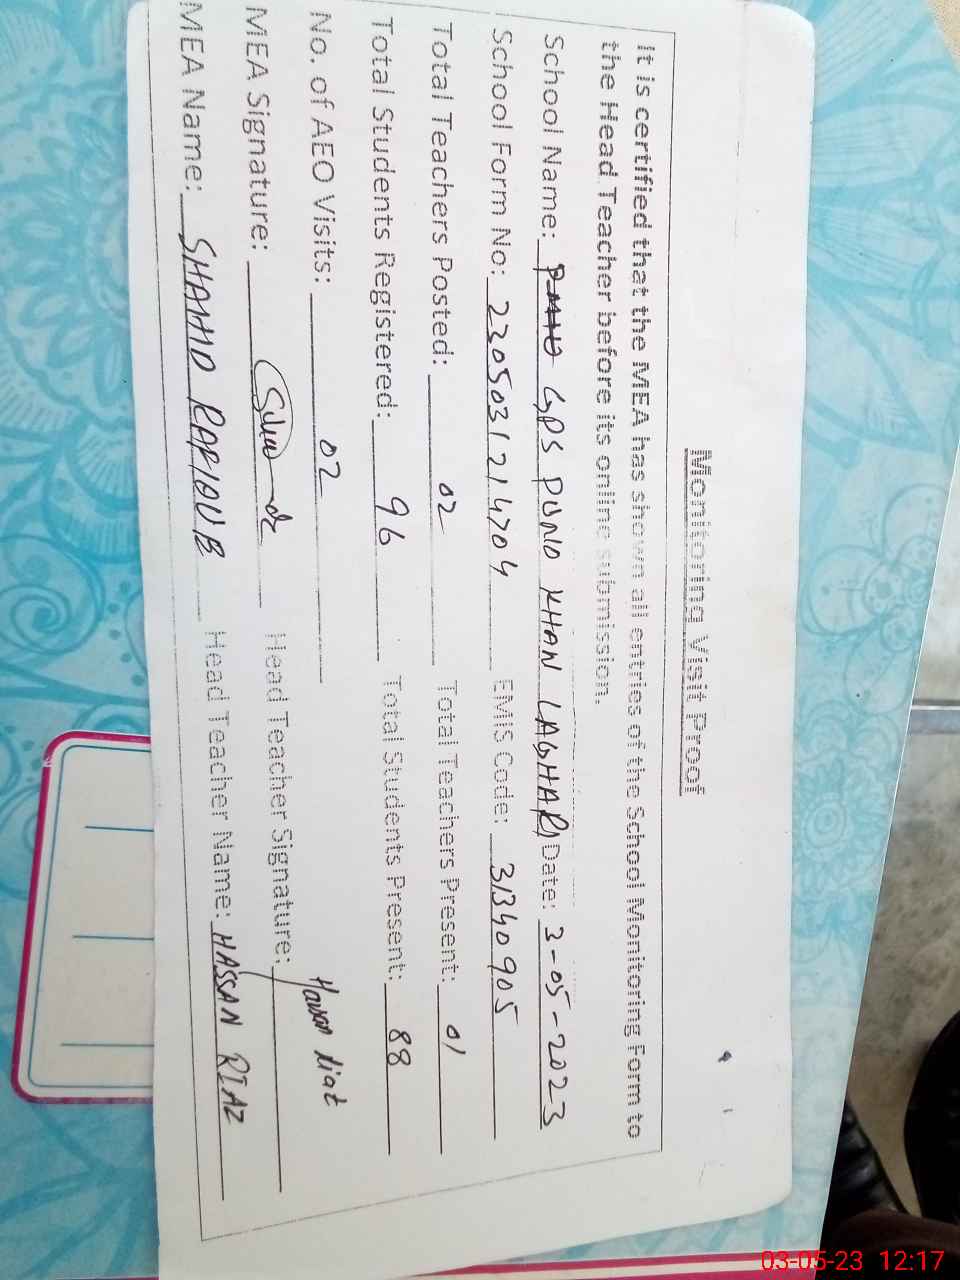 Monitoring Visit Proof
It is certified that the MEA has shown all entries of the School Monitoring Form to
the Head Teacher before its online submission.
School Name: GPS PUNO KHAN LAGHARI Date: 3-05-2023
School Form No: 2305031214704 EMIS Code: 31340905
Total Teachers Posted: 02 Total Teachers Present: 01
Total Students Registered: 96 Total Students Present: 88
No. of AEO Visits: 02
MEA Signature: Head Teacher Signature: Hassan Riaz
MEA Name: SHAHID Head Teacher Name: HASSAN RIAZ
03-05-23 12:17